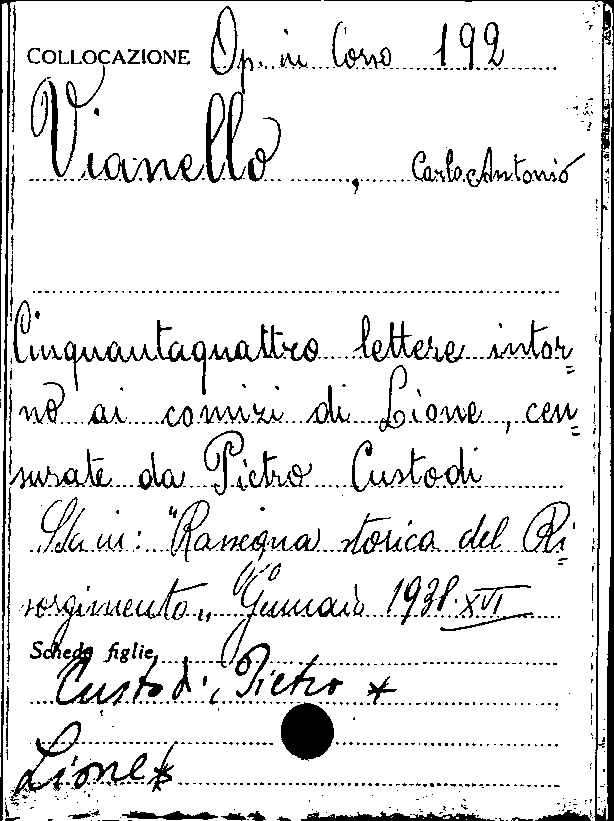 COLLOCAZIONE Op. in Corso 192
Vianello, Carlo Antonio
Cinquantaquattro lettere intor=
no ai comizi di Lione, cen=
surate da Pietro Custodi
Sta in: "Rassegna storica del Ri=
sorgimento" Gennaio 1938. XVI
Schede figlie
Custodi, Pietro *
Lione *